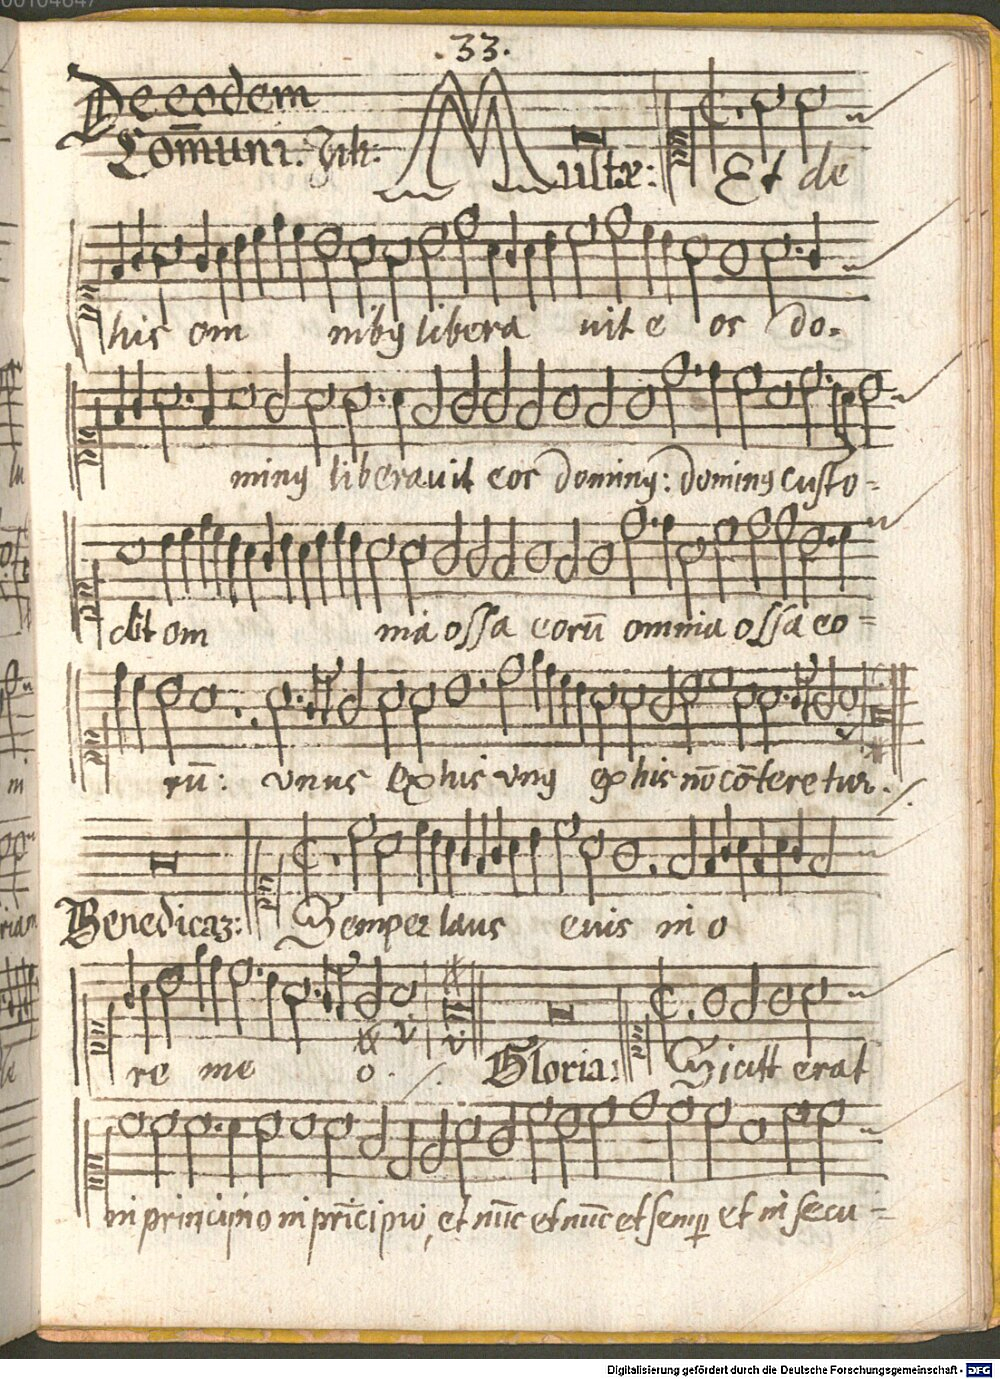 00104647
. 33 .
De eodem
Com̄uni.
Multæ: Et de
his om nibꝯ libera uit e os do-
minꝯ liberauit eos dominꝯ: dominꝯ custo-
dit om nia ossa eorū omnia ossa eo-
rū: vnus ex his vnꝯ ex his nō cōteretur.
Benedicaꝫ: Semper laus eius in o
re me o. Gloria: Sicut erat
in principio in prīcipio, et nūc et nūc et semꝑ et in secu-
Digitalisierung gefördert durch die Deutsche Forschungsgemeinschaft - DFG